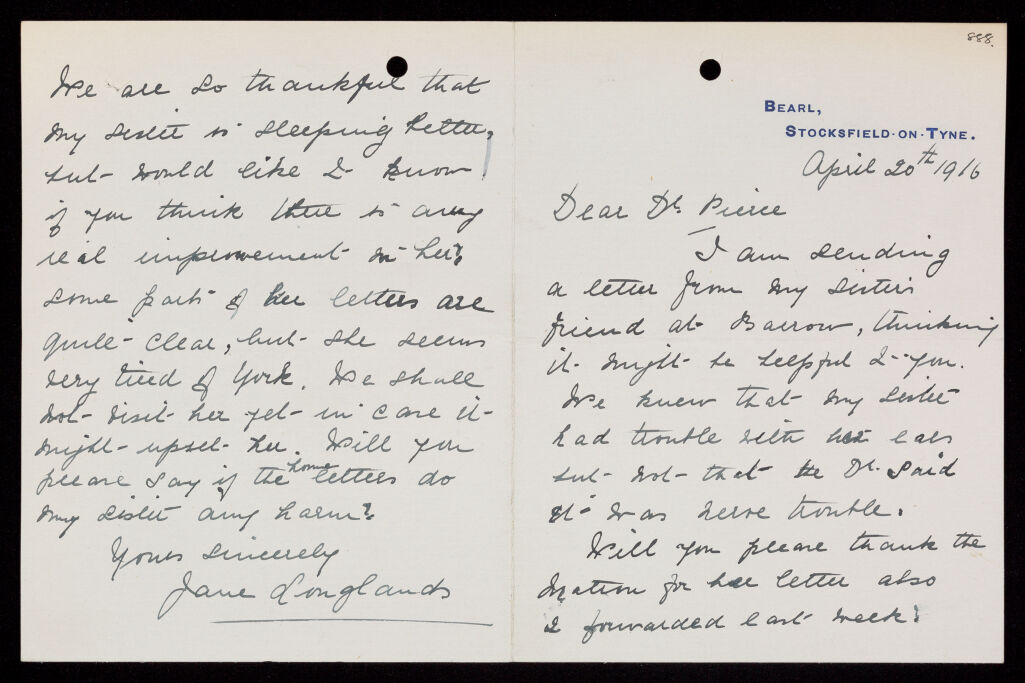 888.
BEARL,
STOCKSFIELD-ON-TYNE.
April 20th 1916
Dear Dr. Pierce
I am sending
a letter from my sister's
friend at Barrow, thinking
it might be helpful to you.
We knew that my sister
had trouble with her ears
but not that the Dr. said
it was nerve trouble.
Will you please thank the
Matron for her letter also
I forwarded last week?
We are so thankful that
my sister is sleeping better,
but would like to know
if you think there is any
real improvement in her?
Some parts of her letters are
quite clear, but she seems
very tired of York. We shall
not visit her yet in case it
might upset her. Will you
please say if the home letters do
my sister any harm?
Yours sincerely
Jane Longlands